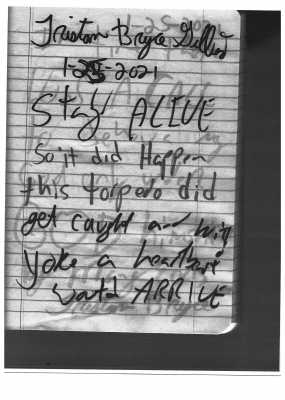 Tristan Bryce Gillies
1-25-2021
Stay ALIVE
So it did Happen
this torpedo did
get caught and
Yoke a heartbeat
would ARRIVE